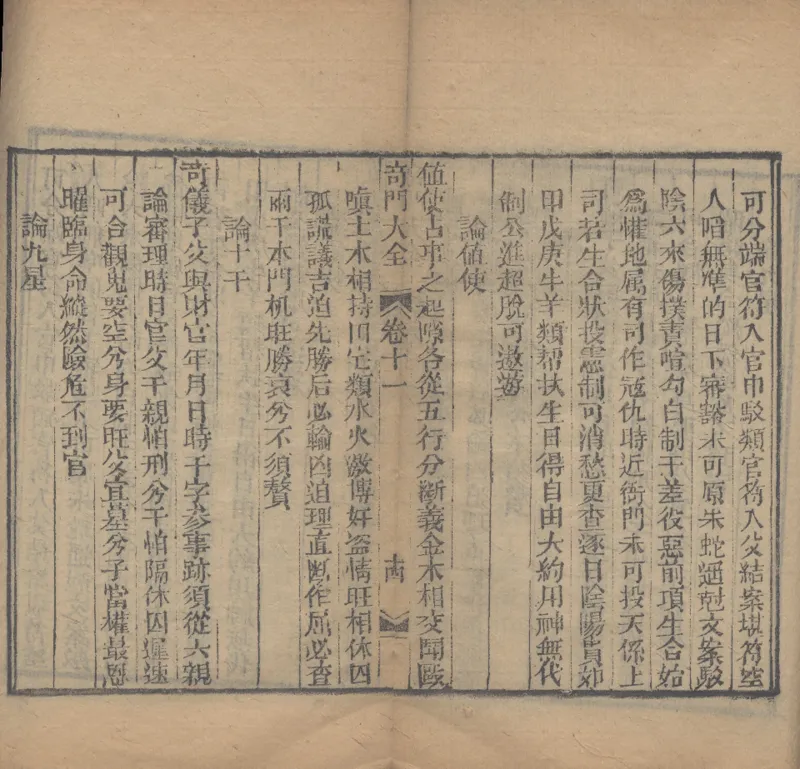 可分端官符入官巾駁類官符入父結案堪符空
人唱無準的日下審豁未可原朱蛇遇尅文案駁
陰六來傷撲責喧勾白制干差役惡前項生合始
為權地属有司作冦仇時近衙門未可投天係上
司若生合狀投憲制可消愁更查逐日陰陽貴卯
甲戊庚牛羊類帮扶生目得自由大約用神無代
制公進超脫可遨遊
論值使
值使占事之起願各從五行分斷義金木相交聞毆
奇門大全 卷十一 十四
嗔土木相持田宅類水火激傳奸盗情旺相休囚
孤謊議吉迫先勝后必輸凶迫理直斷作屈必查
兩干本門机旺勝衰兮不須贅
論十干
竒儀子父與財官年月日時干字參事跡須從六親
論審理時日官父干親怕刑兮干怕隔休囚遲速
可合觀鬼要空兮身要旺父宜墓兮子當權最恩
曜臨身命縱然險危不到官
論九星